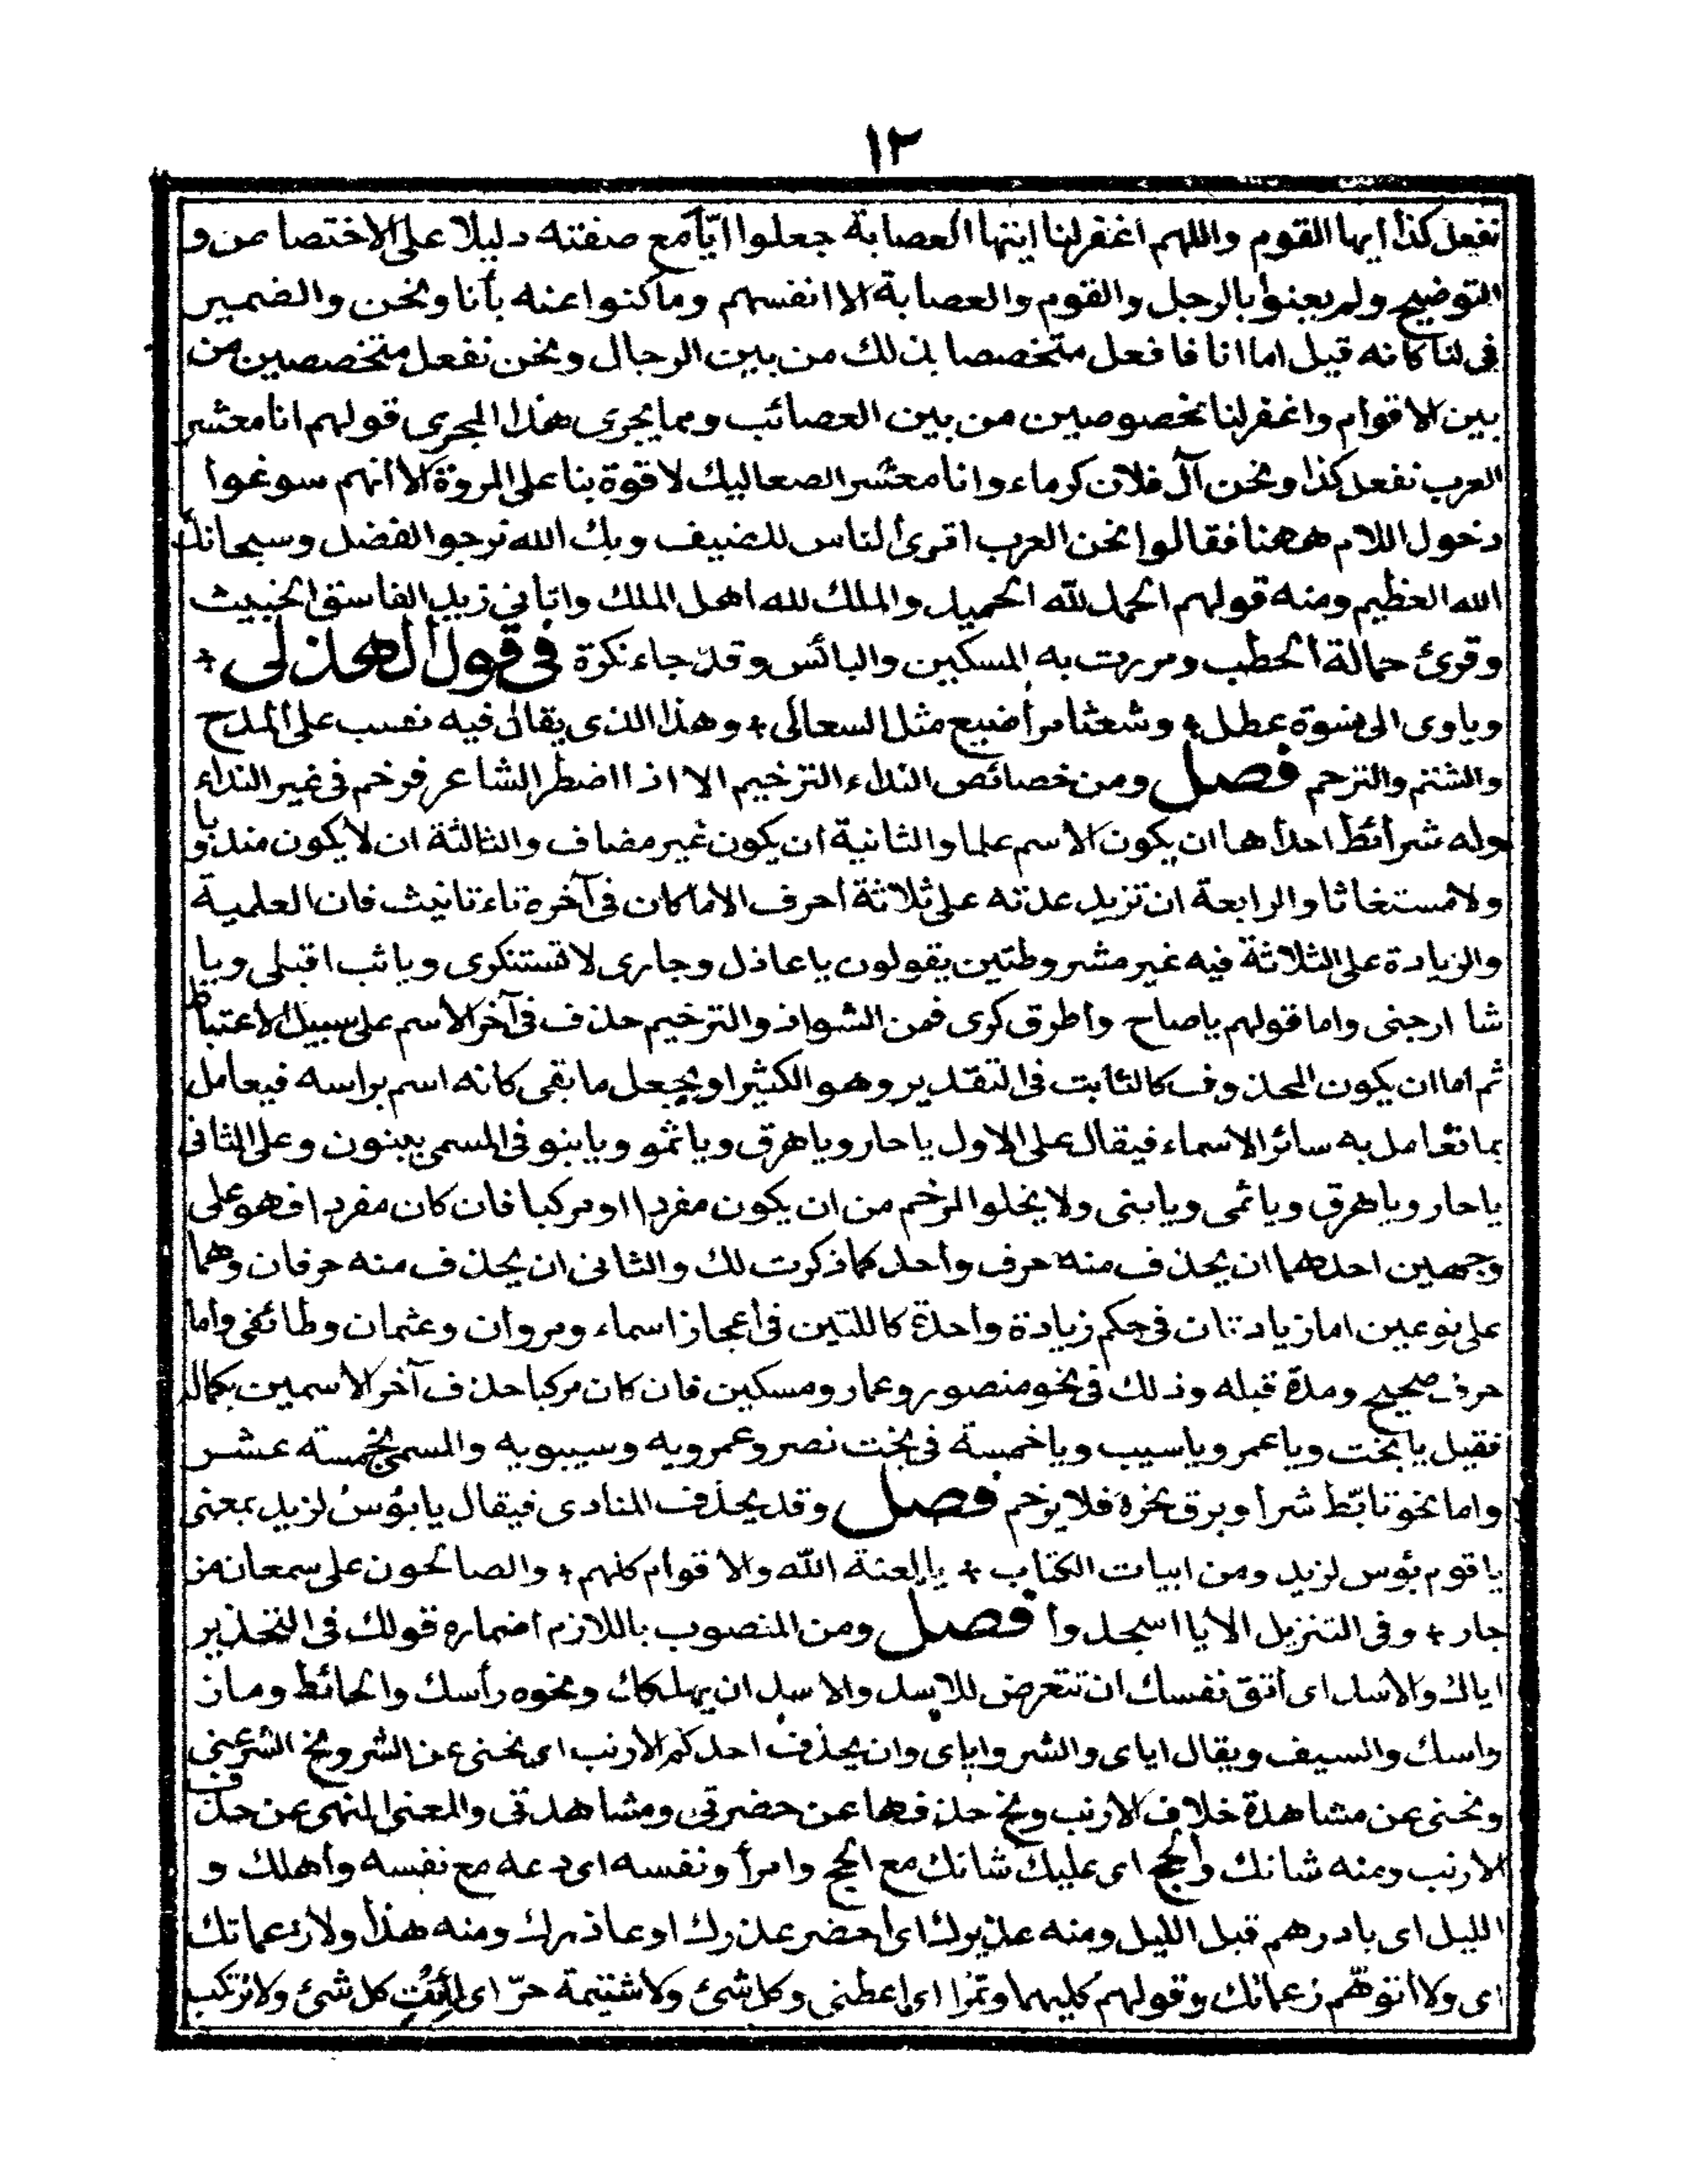 ١٢
نفعل كذا ايها القوم واللهم اغفرلنا ايتها العصابة جعلوا ايّاً مع صفته دليلا على الاختصاص و
التوضيح ولم يعنوا بالرجل والقوم والعصابة الا انفسهم وما كنوا عنه بأنا ونحن والضمير
فى لنا كانه قيل اما انا فافعل متخصصا بذلك من بين الرجال ونحن نفعل متخصصين من
بين الاقوام واغفرلنا مخصوصين من بين العصائب ومما يجرى هذا المجرى قولهم انا معشر
العرب نفعل كذا ونحن آل فلان كرماء وانا معشر الصعاليك لا قوة بنا على المروة الا انهم سوغوا
دخول اللام ههنا فقالوا نحن العرب اقرى الناس للضيف وبك الله نرجو الفضل وسبحانك
الله العظيم ومنه قولهم الحمد لله الحميد والملك لله اهل الملك واتانى زيد الفاسق الخبيث
وقرئ حمالة الحطب ومررت به المسكين والبائس وقد جاء نكرة فى قول الهذلى +
وياوى الى نسوة عطل + وشعثا مراضيع مثل السعالى + وهذا الذى يقال فيه نصب على المدح
والشتم والترحم فصل ومن خصائص النداء الترخيم الا اذا اضطر الشاعر فرخم فى غير النداء
وله شرائط احداها ان يكون الاسم علما والثانية ان يكون غير مضاف والثالثة ان لا يكون مندوبا
ولا مستغاثا والرابعة ان تزيد عدته على ثلاثة احرف الا ما كان فى آخره تاء تانيث فان العلمية
والزيادة على الثلاثة فيه غير مشروطتين يقولون يا عاذل وجارى لا تستنكرى ويا ثب اقبلى ويا
شا ارجنى واما قولهم يا صاح واطرق كرى فمن الشواذ والترخيم حذف فى آخر الاسم على سبيل الاعتباط
ثم اما ان يكون المحذوف كالثابت فى التقدير وهو الكثير او يجعل ما بقى كانه اسم براسه فيعامل
بما تعامل به سائر الاسماء فيقال على الاول يا حار ويا هرق ويا ثمو ويا بنو فى المسمى ببنون وعلى الثانى
يا حار ويا هرق ويا ثمى ويا بنى ولا يخلو المرخم من ان يكون مفردا او مركبا فان كان مفردا فهو على
وجهين احدهما ان يحذف منه حرف واحد كما ذكرت لك والثانى ان يحذف منه حرفان وهما
على نوعين اما زيادتان فى حكم زيادة واحدة كاللتين فى اعجاز اسماء ومروان وعثمان وطائفى واما
حرف صحيح ومدة قبله وذلك فى نحو منصور وعمار ومسكين فان كان مركبا حذف آخر الاسمين بكماله
فقيل يا بخت ويا عمر ويا سيب ويا خمسة فى بخت نصر وعمرويه وسيبويه والمسمى بخمسته عشر
واما نحو تابّط شرا وبرق نحره فلا يرخم فصل وقد يحذف المنادى فيقال يا بؤسُ لزيد بمعنى
يا قوم بؤس لزيد ومن ابيات الكتاب + يا لعنة الله والاقوام كلهم + والصالحون على سمعان من
جار + وفى التنزيل الا يا اسجدوا فصل ومن المنصوب باللازم اضماره قولك فى التحذير
اياك والاسد اى اتق نفسك ان تتعرض للاسد والاسد ان يهلكك ونحوه رأسك والحائط وماز
راسك والسيف ويقال اياى والشر واياى وان يحذف احدكم الارنب اى نحنى عن الشر ونح الشر عنى
ونحنى عن مشاهدة خلاف الارنب ونح حذفها عن حضرتى ومشاهدتى والمعنى المنهى عن حذف
الارنب ومنه شانك والحج اى عليك شانك مع الحج وامرأ ونفسه اى دعه مع نفسه واهلك و
الليل اى بادرهم قبل الليل ومنه عذيرك اى احضر عذرك او عاذرك ومنه هذا ولا زعماتك
اى ولا اتوهّم زعماتك وقولهم كليهما وتمرا اى اعطنى وكل شئ ولا شتيمة حرّ اى ائت كل شئ ولا ترتكب